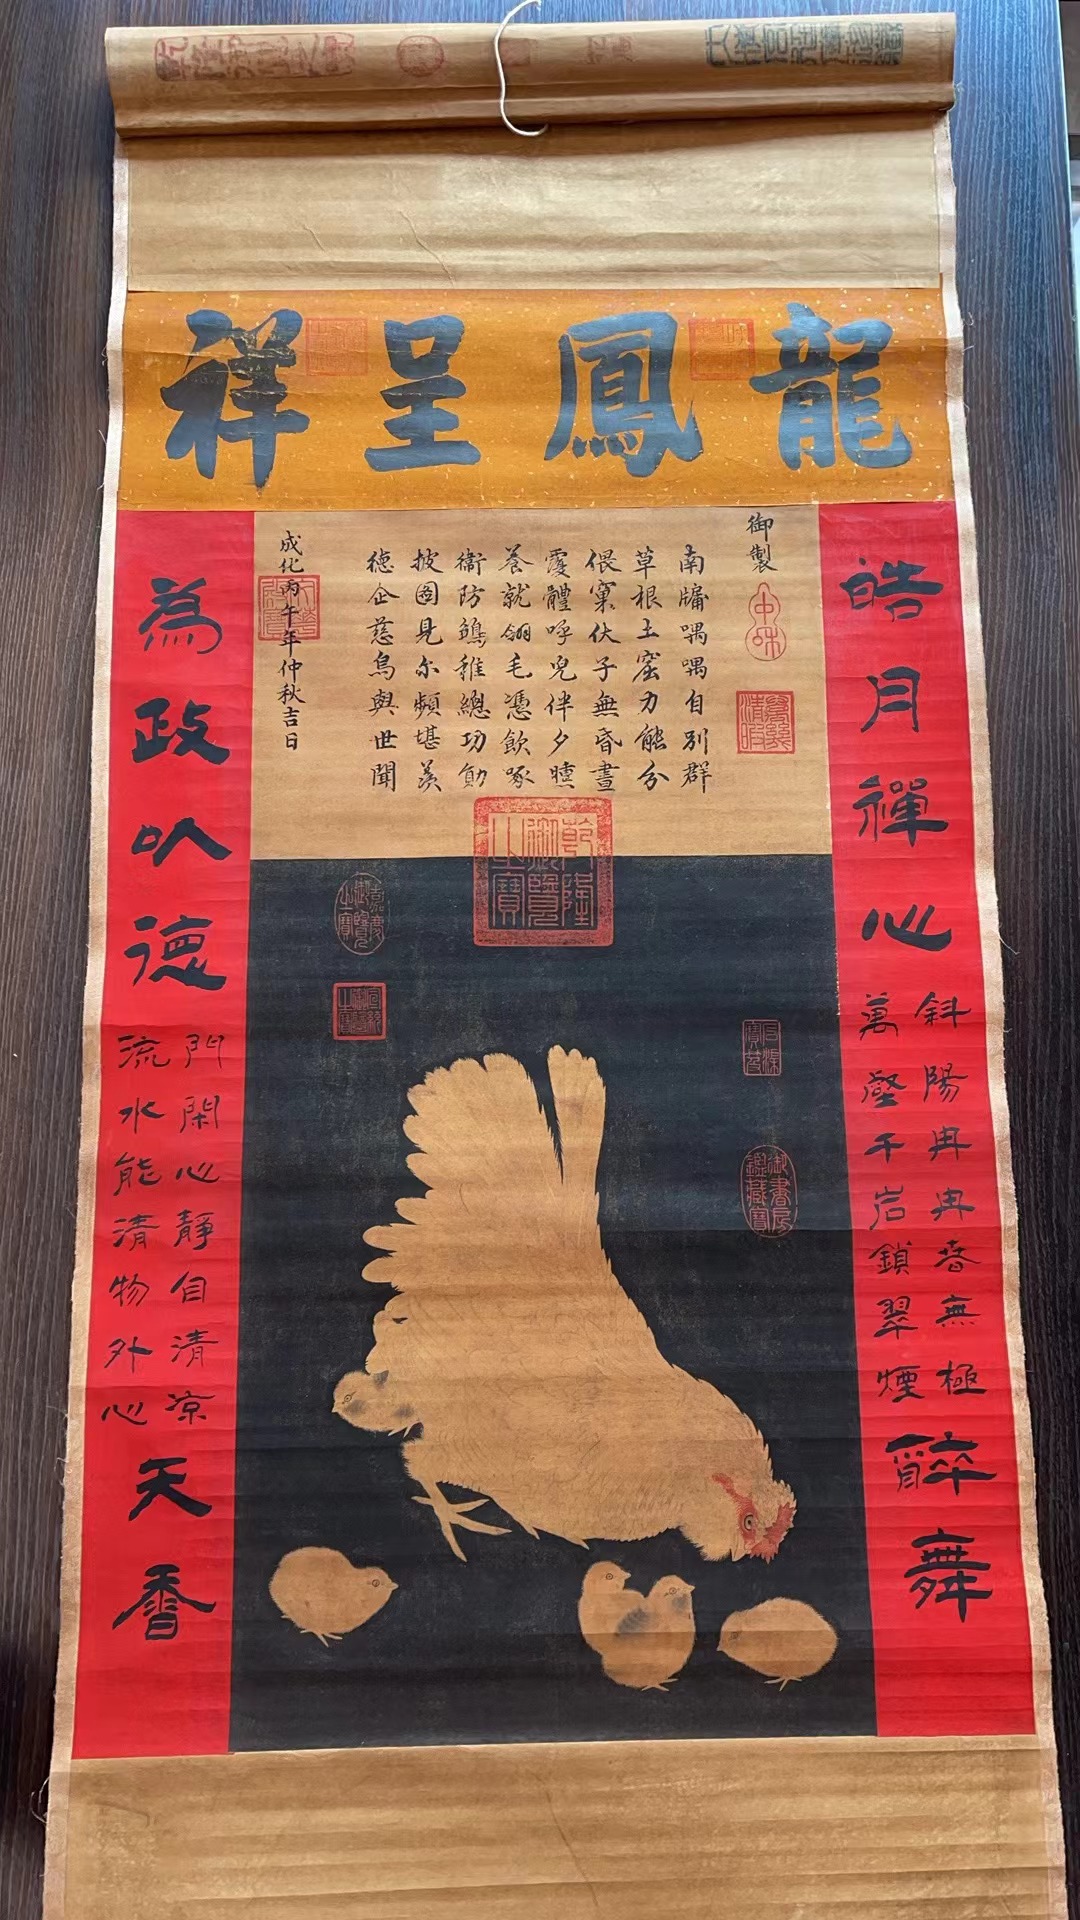 龍鳳呈祥
御製
南牖喁喁自別群
草根土窟力能分
偎窠伏子無昏晝
覆體呼兒伴夕曛
養就翎毛憑飲啄
衛防鷇雛總功勛
披圖見尔頻堪羨
德企慈烏與世聞
成化丙午年仲秋吉日
皓月禪心
斜陽冉冉春無極
萬壑千岩鎖翠煙
醉舞
為政以德
門閑心靜自清涼
流水能清物外心
天香
乾隆御覽之寶
嘉慶御覽之寶
御書房鑑藏寶